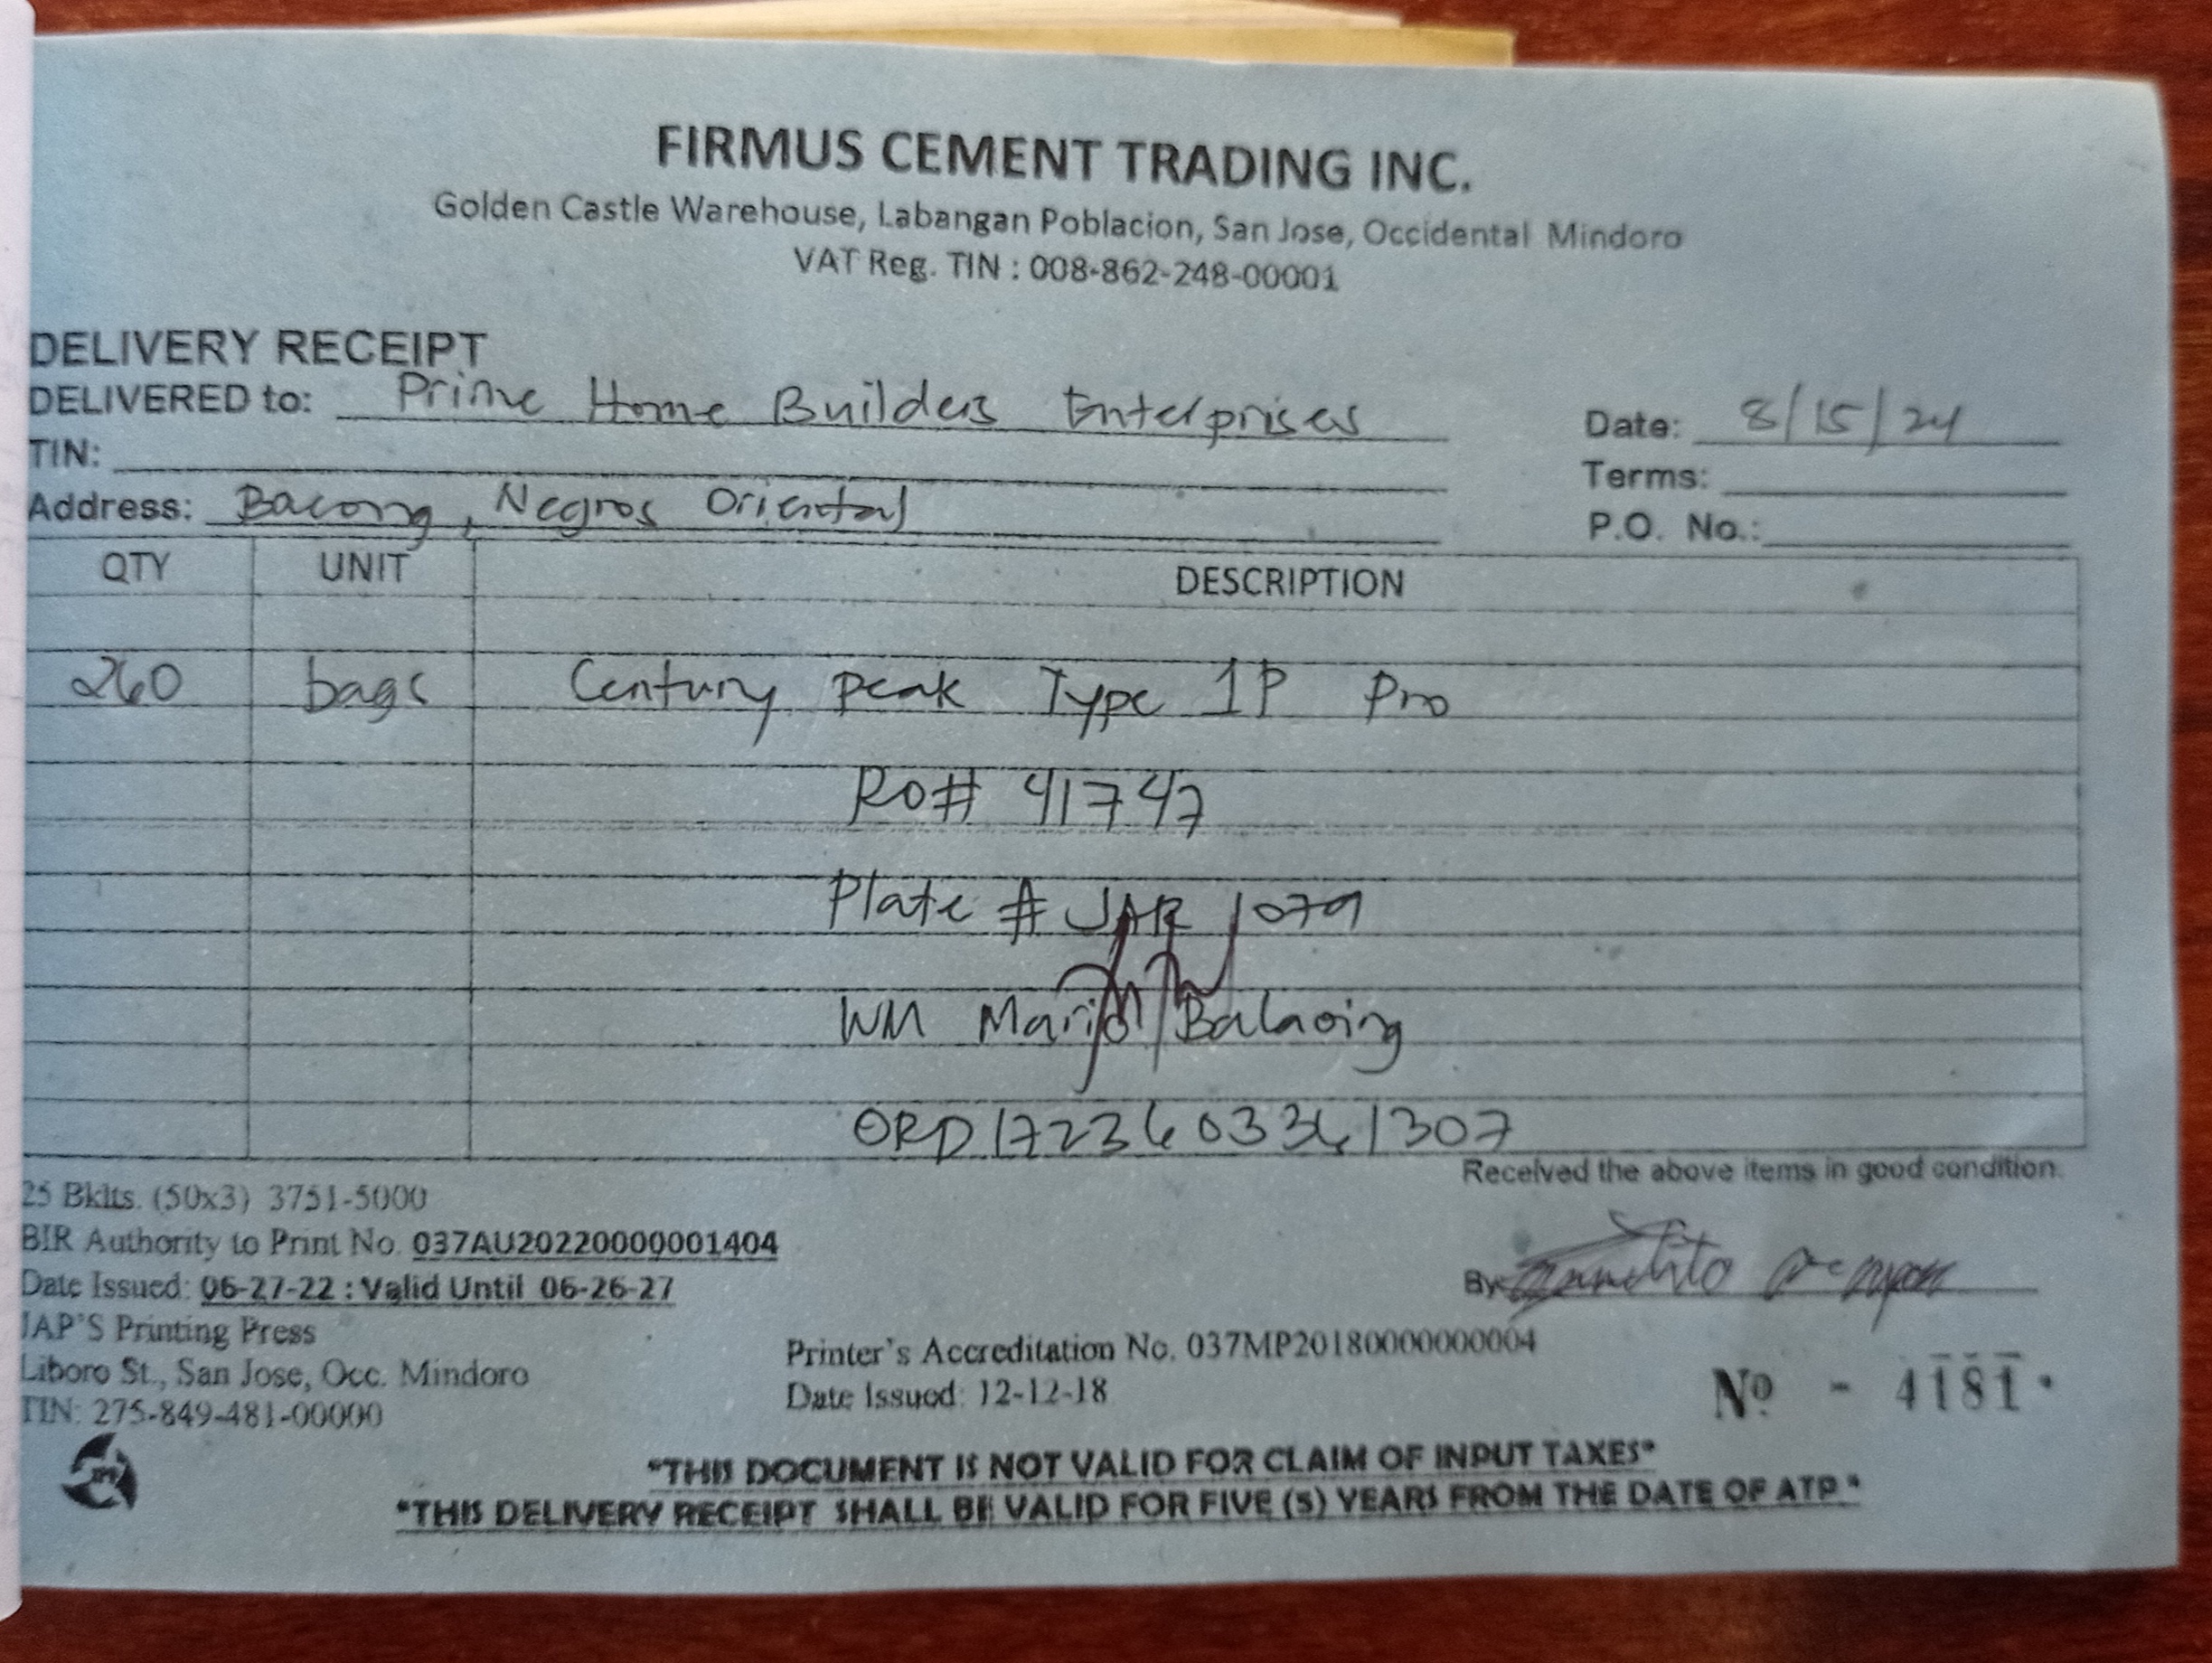 FIRMUS CEMENT TRADING INC.
Golden Castle Warehouse, Labangan Poblacion, San Jose, Occidental Mindoro
VAT Reg. TIN : 008-862-248-00001
DELIVERY RECEIPT
DELIVERED to: Prime Home Builders Enterprises
Date: 8/15/24
TIN:
Terms:
Address: Bacong, Negros Oriental
P.O. No.:
QTY UNIT DESCRIPTION
260 bags Century Peak Type 1P Pro
RO# 41747
Plate # JAR 1079
WM Marijo Balaoing
ORD1723603361307
Received the above items in good condition.
25 Bklts. (50x3) 3751-5000
BIR Authority to Print No. 037AU20220000001404
By:
Date Issued: 06-27-22 : Valid Until 06-26-27
JAP'S Printing Press
Liboro St., San Jose, Occ. Mindoro
TIN: 275-849-481-00000
Printer's Accreditation No. 037MP20180000000004
Date Issued: 12-12-18
Nº - 4181
*THIS DOCUMENT IS NOT VALID FOR CLAIM OF INPUT TAXES*
*THIS DELIVERY RECEIPT SHALL BE VALID FOR FIVE (5) YEARS FROM THE DATE OF ATP*